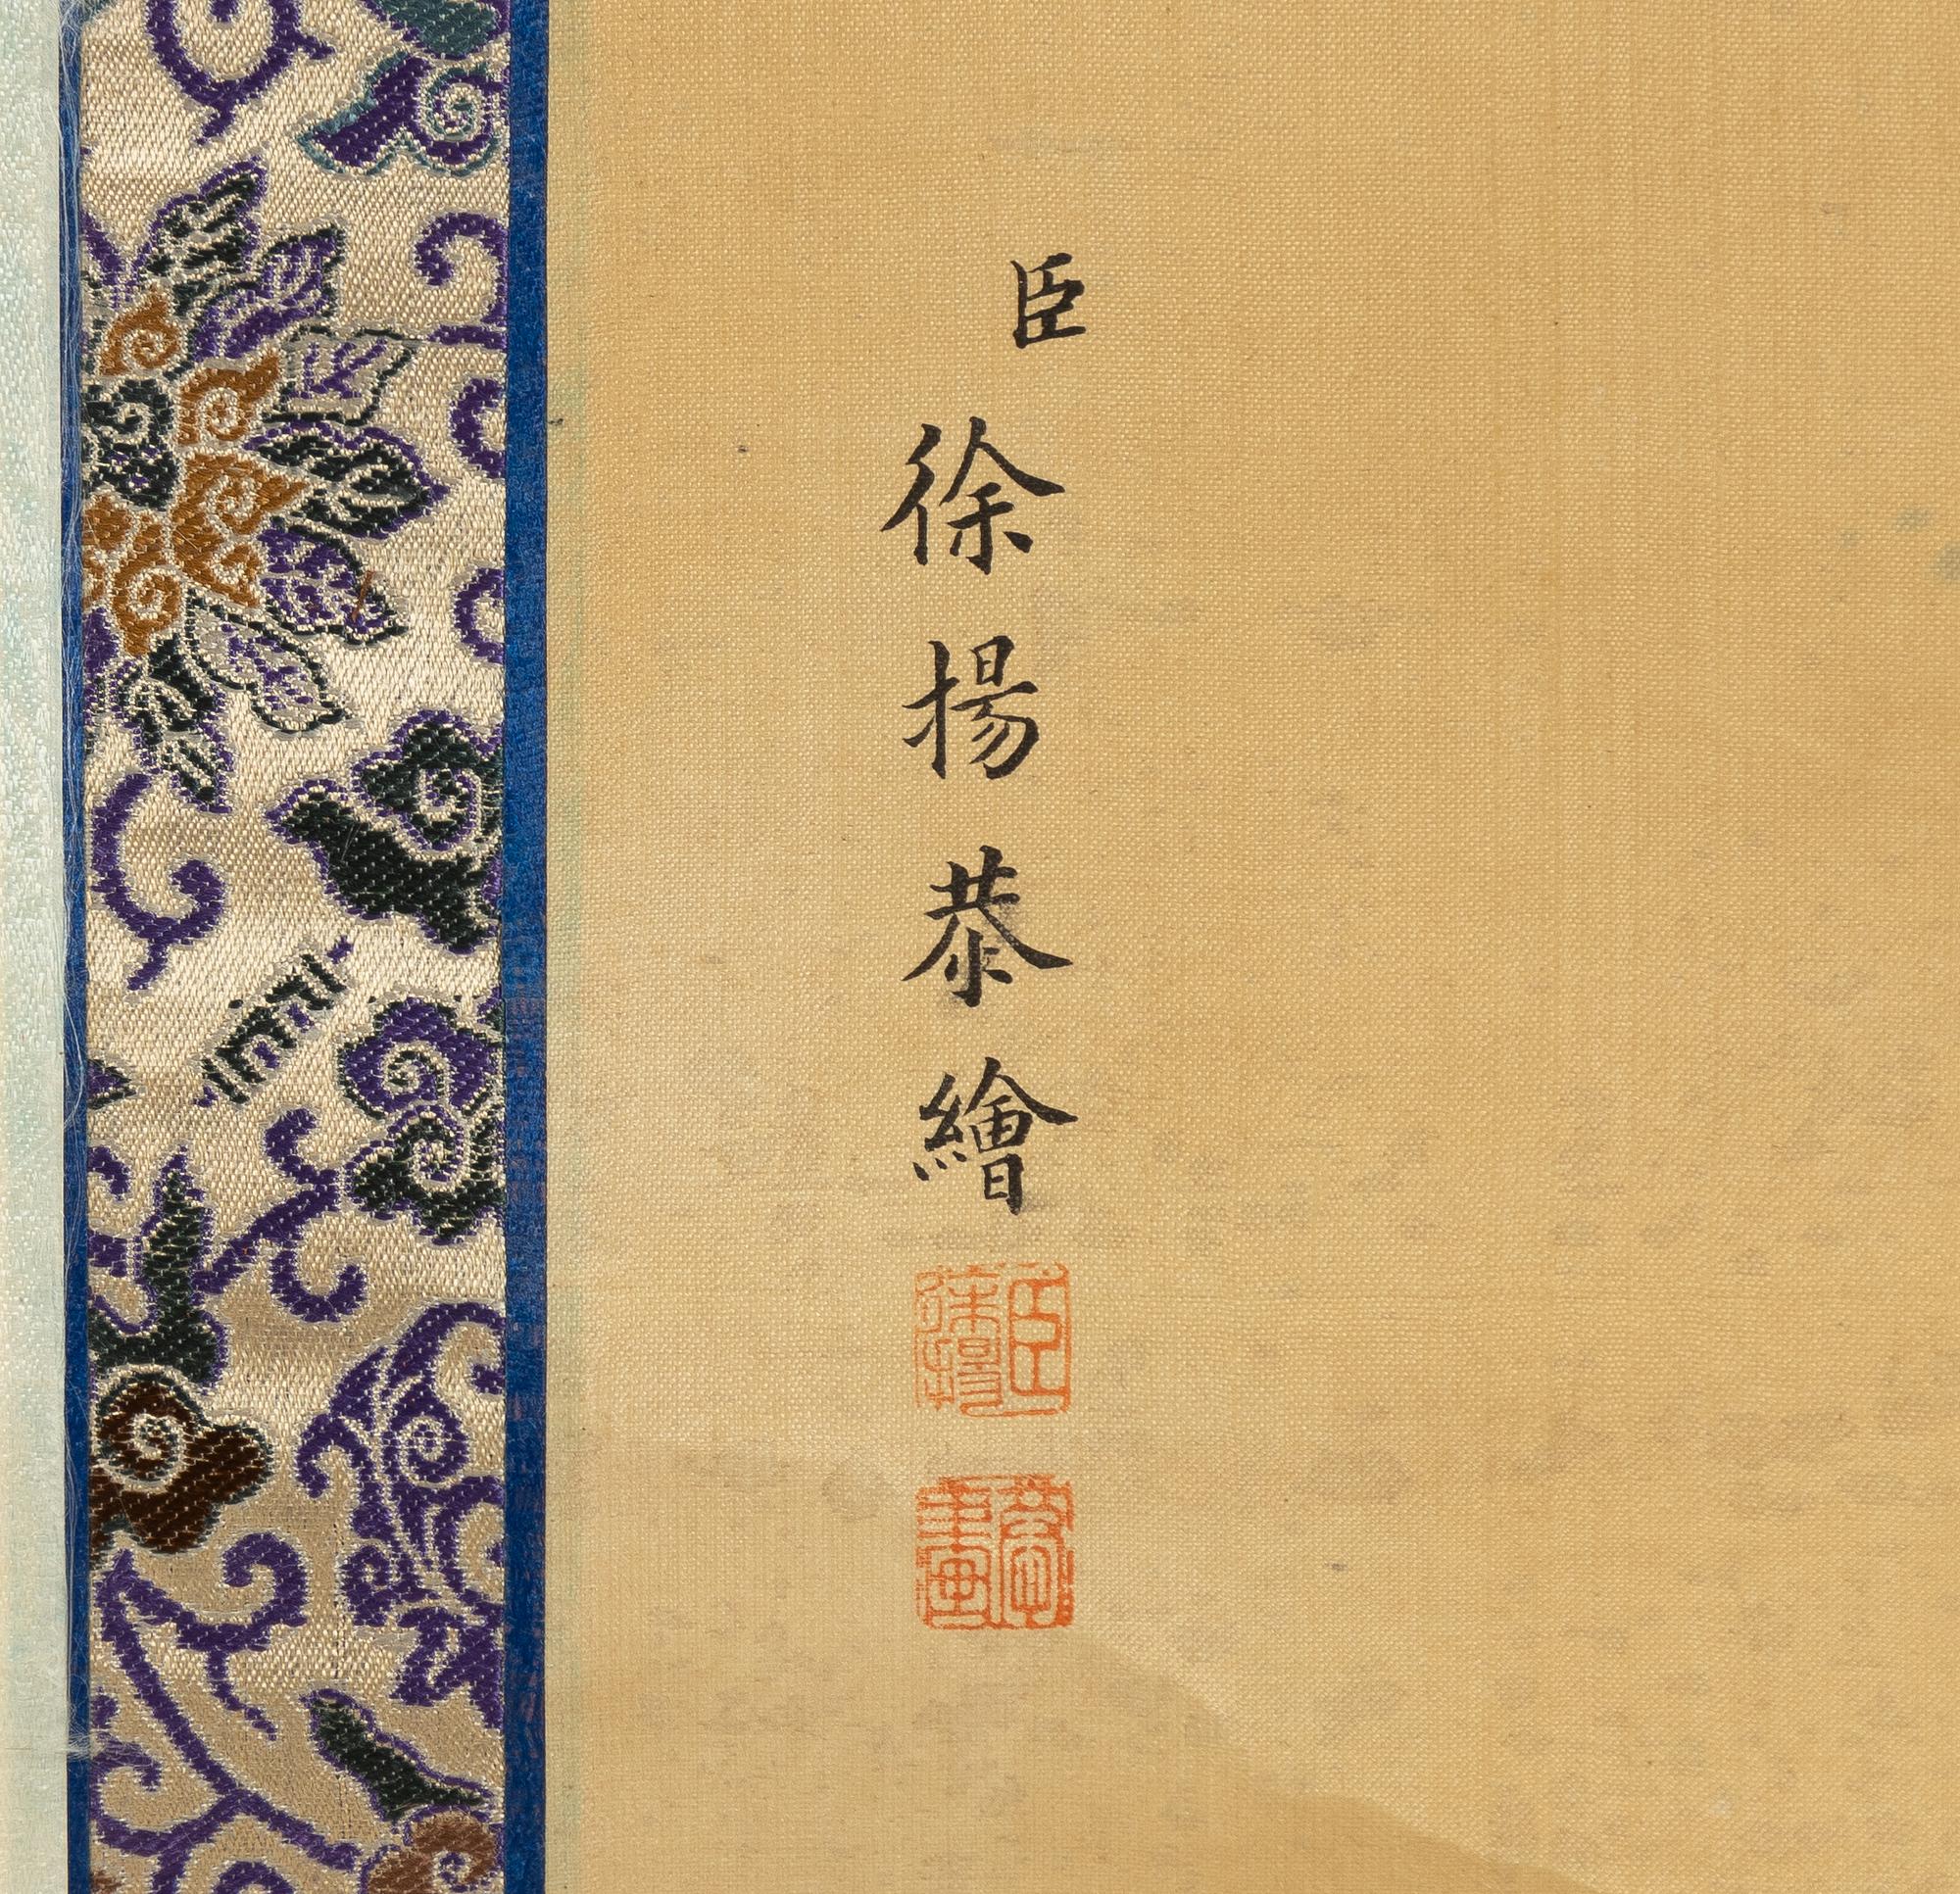 臣徐揚恭繪
臣徐揚